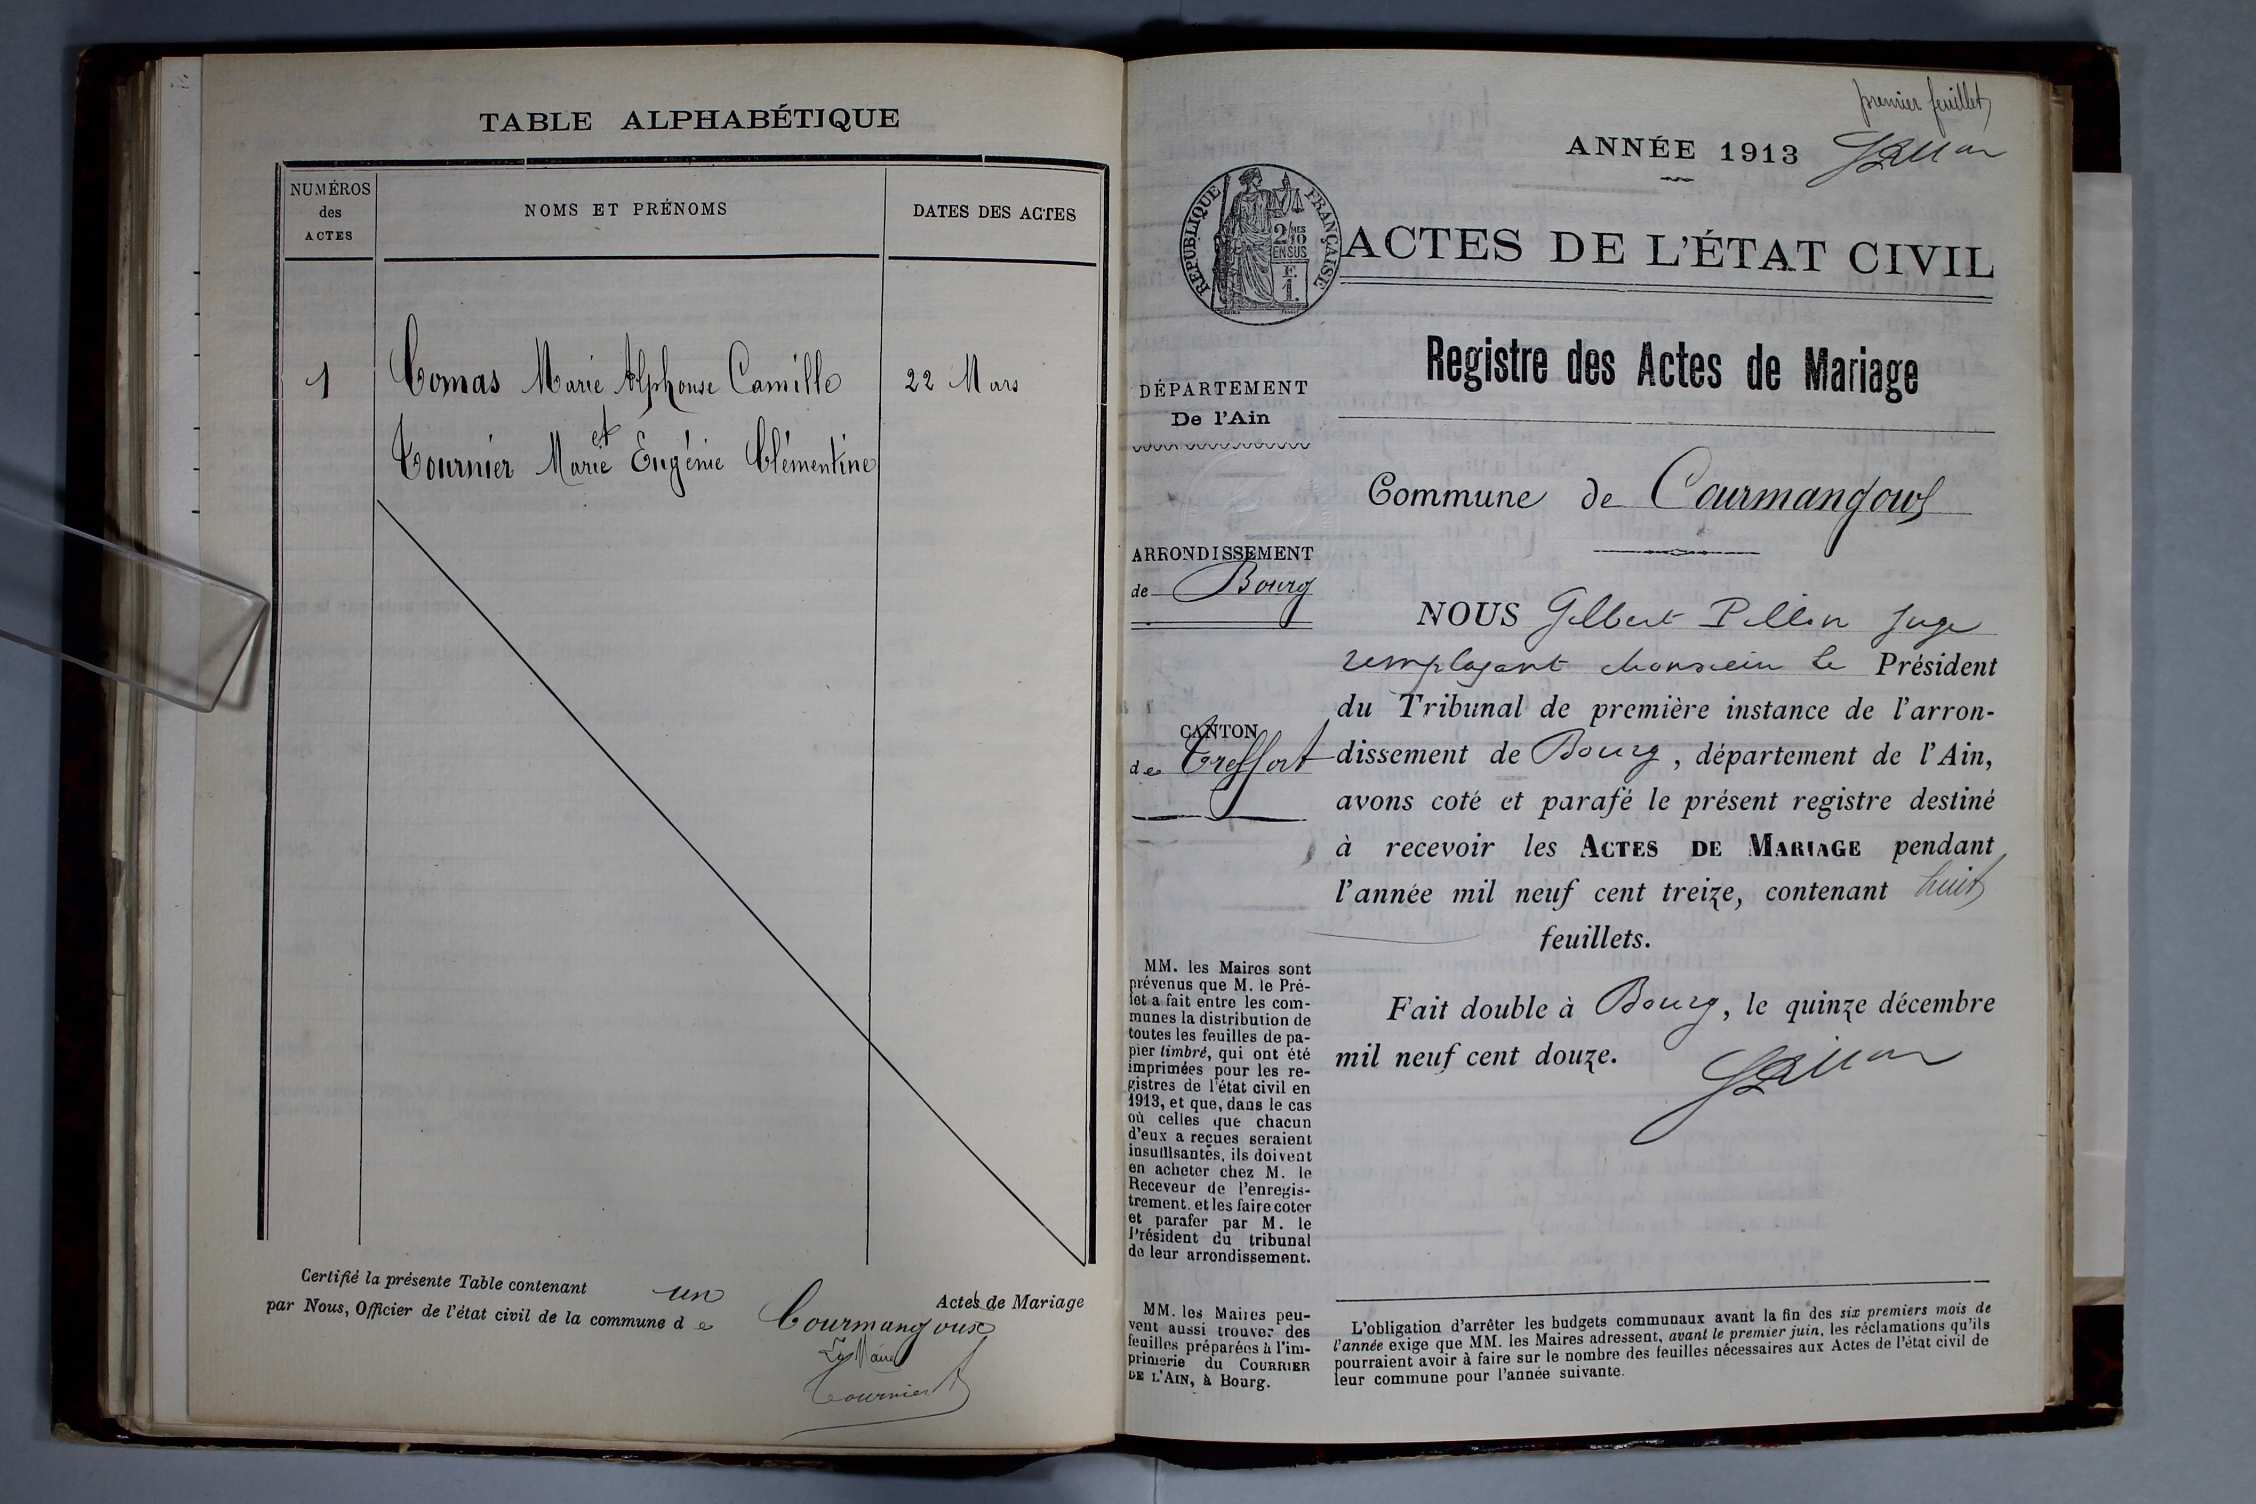 TABLE ALPHABÉTIQUE
NUMÉROS
des
ACTES
NOMS ET PRÉNOMS
DATES DES ACTES
1 Comas Marie Alphonse Camille 22 Mars
et
Tournier Marie Eugénie Clémentine
Certifié la présente Table contenant un Actes de Mariage
par Nous, Officier de l'état civil de la commune de Courmangoux
Le Maire
Tournier
premier feuillet
ANNÉE 1913
RÉPUBLIQUE FRANÇAISE
2/10MES
EN SUS
F.
1.
ACTES DE L'ÉTAT CIVIL
Registre des Actes de Mariage
DÉPARTEMENT
De l'Ain
Commune de Courmangoux
ARRONDISSEMENT
de Bourg
CANTON
de Treffort
NOUS Gilbert Pillon Juge
remplaçant Monsieur le Président
du Tribunal de première instance de l'arron-
dissement de Bourg, département de l'Ain,
avons coté et parafé le présent registre destiné
à recevoir les ACTES DE MARIAGE pendant
l'année mil neuf cent treize, contenant huit
feuillets.
Fait double à Bourg, le quinze décembre
mil neuf cent douze.
MM. les Maires sont
prévenus que M. le Pré-
fet a fait entre les com-
munes la distribution de
toutes les feuilles de pa-
pier timbré, qui ont été
imprimées pour les re-
gistres de l'état civil en
1913, et que, dans le cas
où celles que chacun
d'eux a reçues seraient
insuffisantes, ils doivent
en acheter chez M. le
Receveur de l'enregis-
trement. et les faire coter
et parafer par M. le
Président du tribunal
de leur arrondissement.
MM. les Maires peu-
vent aussi trouver des
feuilles préparées à l'im-
primerie du COURRIER
DE L'AIN, à Bourg.
L'obligation d'arrêter les budgets communaux avant la fin des six premiers mois de
l'année exige que MM. les Maires adressent, avant le premier juin, les réclamations qu'ils
pourraient avoir à faire sur le nombre des feuilles nécessaires aux Actes de l'état civil de
leur commune pour l'année suivante.